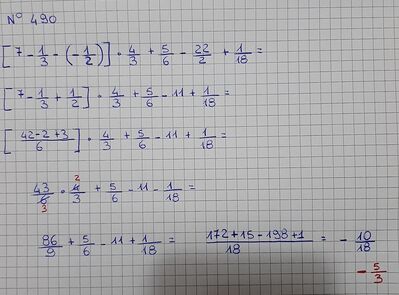 N° 490
[7 - 1/3 - (-1/2)] · 4/3 + 5/6 - 22/2 + 1/18 =
[7 - 1/3 + 1/2] · 4/3 + 5/6 - 11 + 1/18 =
[42-2+3/6] · 4/3 + 5/6 - 11 + 1/18 =
2
43/6 · 4/3 + 5/6 - 11 - 1/18 =
3
86/9 + 5/6 - 11 + 1/18 = 172+15-198+1/18 = - 10/18
- 5/3